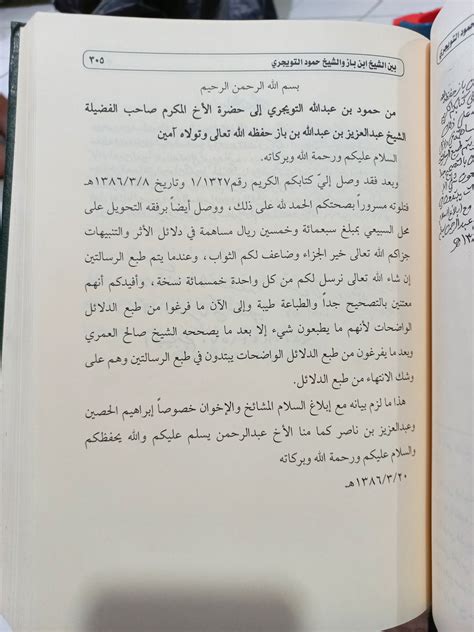 بين الشيخ ابن باز والشيخ حمود التويجري ٣٠٥
بسم الله الرحمن الرحيم
من حمود بن عبدالله التويجري إلى حضرة الأخ المكرم صاحب الفضيلة
الشيخ عبدالعزيز بن عبدالله بن باز حفظه الله تعالى وتولاه آمين
السلام عليكم ورحمة الله وبركاته.
وبعد فقد وصل إليّ كتابكم الكريم رقم ١/١٣٢٧ وتاريخ ١٣٨٦/٣/٨هـ
فتلوته مسروراً بصحتكم الحمد لله على ذلك، ووصل أيضاً برفقه التحويل على
محل السبيعي بمبلغ سبعمائة وخمسين ريال مساهمة في دلائل الأثر والتنبيهات
جزاكم الله تعالى خير الجزاء وضاعف لكم الثواب، وعندما يتم طبع الرسالتين
إن شاء الله تعالى نرسل لكم من كل واحدة خمسمائة نسخة، وأفيدكم أنهم
معتنين بالتصحيح جداً والطباعة طيبة وإلى الآن ما فرغوا من طبع الدلائل
الواضحات لأنهم ما يطبعون شيء إلا بعد ما يصححه الشيخ صالح العمري
وبعد ما يفرغون من طبع الدلائل الواضحات يبتدون في طبع الرسالتين وهم على
وشك الانتهاء من طبع الدلائل.
هذا ما لزم بيانه مع إبلاغ السلام المشائخ والإخوان خصوصاً إبراهيم الحصين
وعبدالعزيز بن ناصر كما منا الأخ عبدالرحمن يسلم عليكم والله يحفظكم
والسلام عليكم ورحمة الله وبركاته
١٣٨٦/٣/٢٠هـ
حمود التويجري